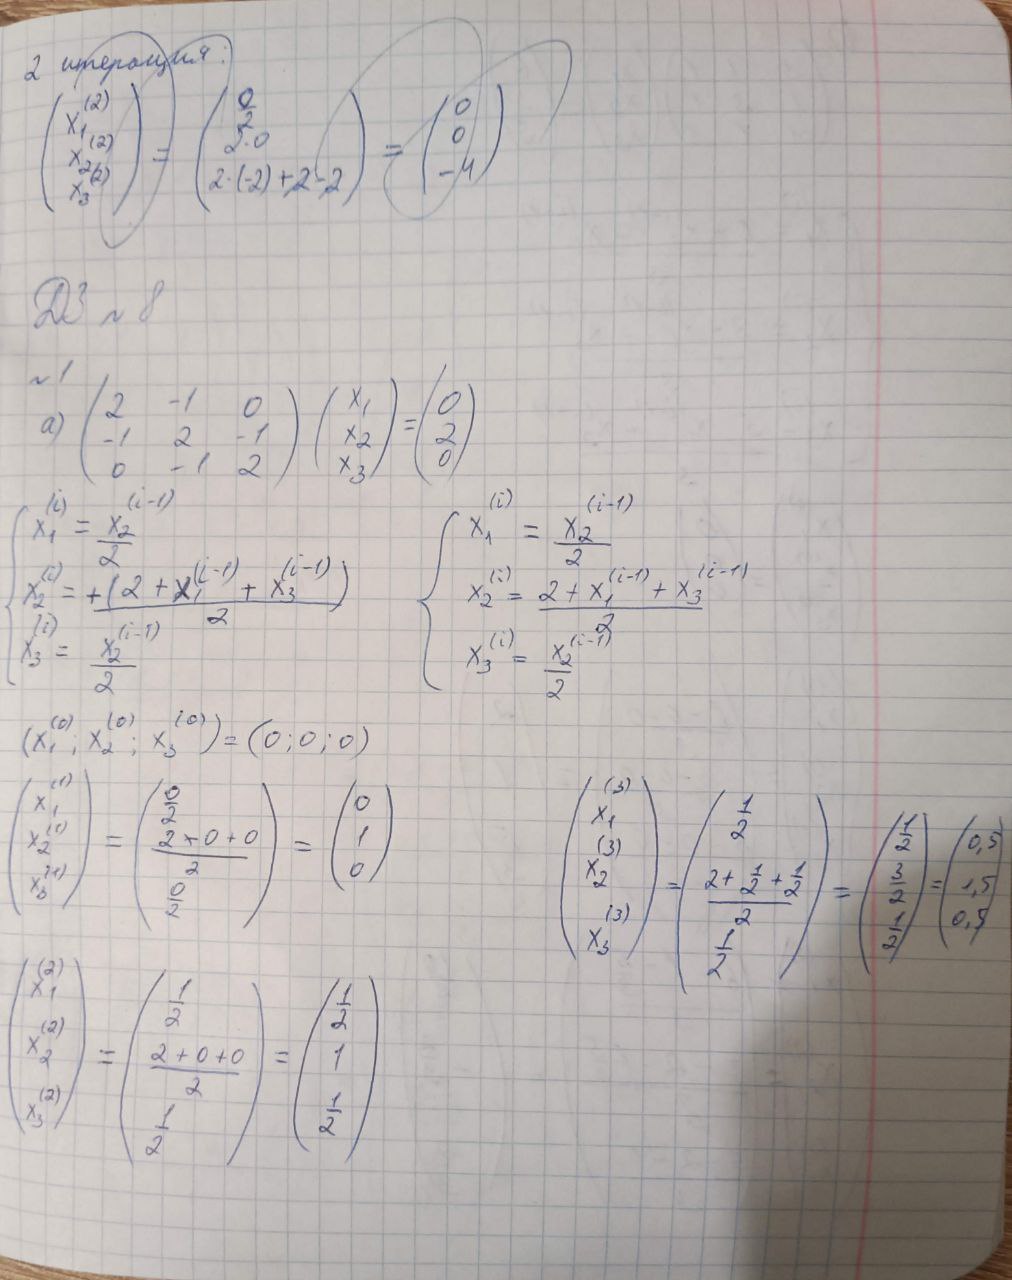 2 итерация:
(x₁⁽²⁾; x₂⁽²⁾; x₃⁽²⁾) = (0/2; 2·0; 2·(-2)+2-2) = (0; 0; -4)
ДЗ №8
№1
а) (2 -1 0; -1 2 -1; 0 -1 2) (x₁; x₂; x₃) = (0; 2; 0)
{ x₁⁽ⁱ⁾ = x₂⁽ⁱ⁻¹⁾/2
x₂⁽ⁱ⁾ = +(2 + x₁⁽ⁱ⁻¹⁾ + x₃⁽ⁱ⁻¹⁾)/2
x₃⁽ⁱ⁾ = x₂⁽ⁱ⁻¹⁾/2
{ x₁⁽ⁱ⁾ = x₂⁽ⁱ⁻¹⁾/2
x₂⁽ⁱ⁾ = (2 + x₁⁽ⁱ⁻¹⁾ + x₃⁽ⁱ⁻¹⁾)/2
x₃⁽ⁱ⁾ = x₂⁽ⁱ⁻¹⁾/2
(x₁⁽⁰⁾; x₂⁽⁰⁾; x₃⁽⁰⁾) = (0; 0; 0)
(x₁⁽¹⁾; x₂⁽¹⁾; x₃⁽¹⁾) = (0/2; (2+0+0)/2; 0/2) = (0; 1; 0)
(x₁⁽²⁾; x₂⁽²⁾; x₃⁽²⁾) = (1/2; (2+0+0)/2; 1/2) = (1/2; 1; 1/2)
(x₁⁽³⁾; x₂⁽³⁾; x₃⁽³⁾) = (1/2; (2+1/2+1/2)/2; 1/2) = (1/2; 3/2; 1/2) = (0,5; 1,5; 0,5)